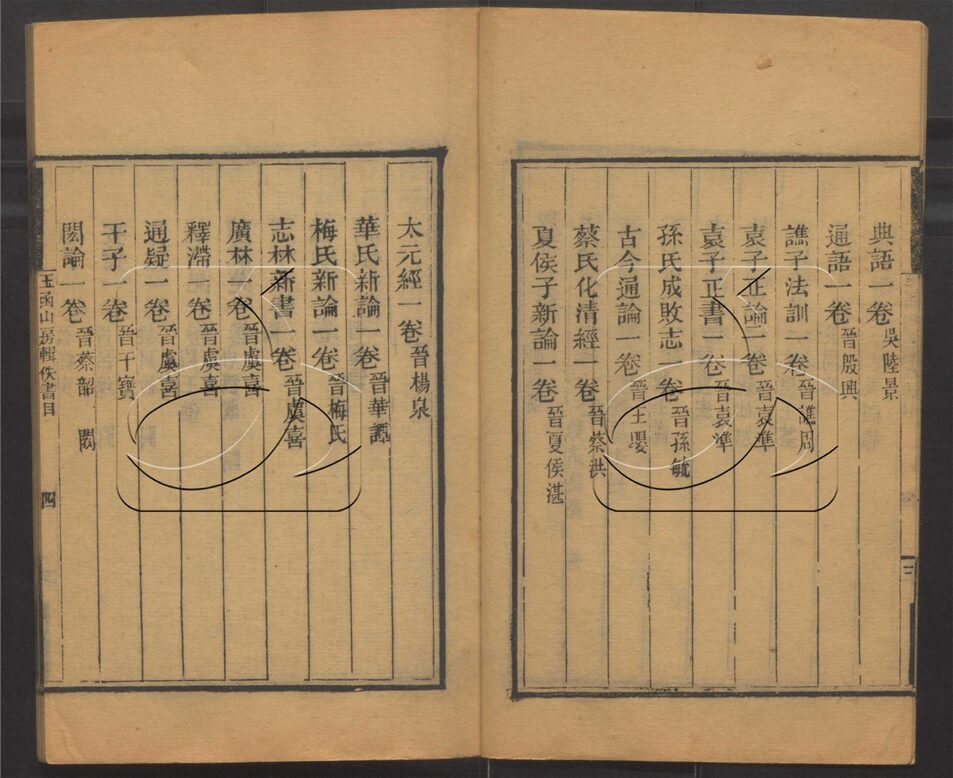 典語一卷吳陸景
通語一卷晉殷興
譙子法訓一卷晉譙周
袁子正論一卷晉袁準
袁子正書一卷晉袁準
孫氏成敗志一卷晉孫毓
古今通論一卷晉王嬰
蔡氏化清經一卷晉蔡洪
夏侯子新論一卷晉夏侯湛
三
太元經一卷晉楊泉
華氏新論一卷晉華譚
梅氏新論一卷晉梅氏
志林新書一卷晉虞喜
廣林一卷晉虞喜
釋滯一卷晉虞喜
通疑一卷晉虞喜
干子一卷晉干寶
閎論一卷晉蔡韶 闕
玉函山房輯佚書目 四